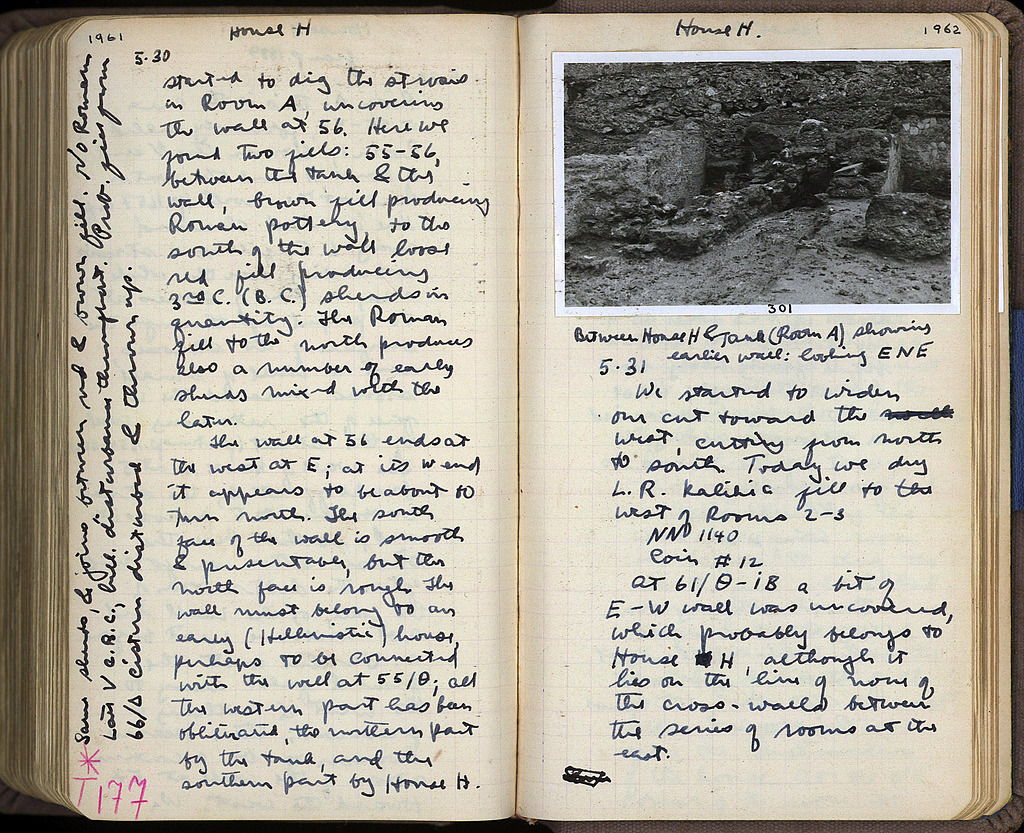 1961
House H
5.30
started to dig the strais
in Room A, uncovering
the wall at 56. Here we
found two fills: 55-56,
between the tank & the
wall, brown fill producing
Roman pottery, to the
south of the wall loose
red fill producing
3rd C. (B.C.) sherds in
quantity. The Roman
fill to the north produces
also a number of early
sherds mixed with the
later.
The wall at 56 ends at
the west at E; at its w end
it appears to be about to
turn north. The south
face of the wall is smooth
& presentable, but the
north face is rough. The
wall must belong to an
early (Hellenistic) house,
perhaps to be connected
with the well at 55/Θ; all
the western part has been
obliterated, the northern part
by the tank, and the
southern part by House H.
Same sherds, & joins between red & brown fill. No Roman
Late V C. B.C., hill. disturbance throughout. Prob. fill from
66/Δ cistern disturbed & thrown up.
*
T177
House H.
1962
301
Between House H & Tank (Room A) showing
earlier wall: looking ENE
5.31
We started to widen
our cut toward the
west, cutting from north
to south. Today we dug
L.R. kalikia fill to the
west of Rooms 2-3
NN 1140
Coin #12
At 61/Θ-ΙΒ a bit of
E-W wall was uncovered,
which probably belongs to
House H, although it
lies on the line of none of
the cross-walls between
the series of rooms at the
east.